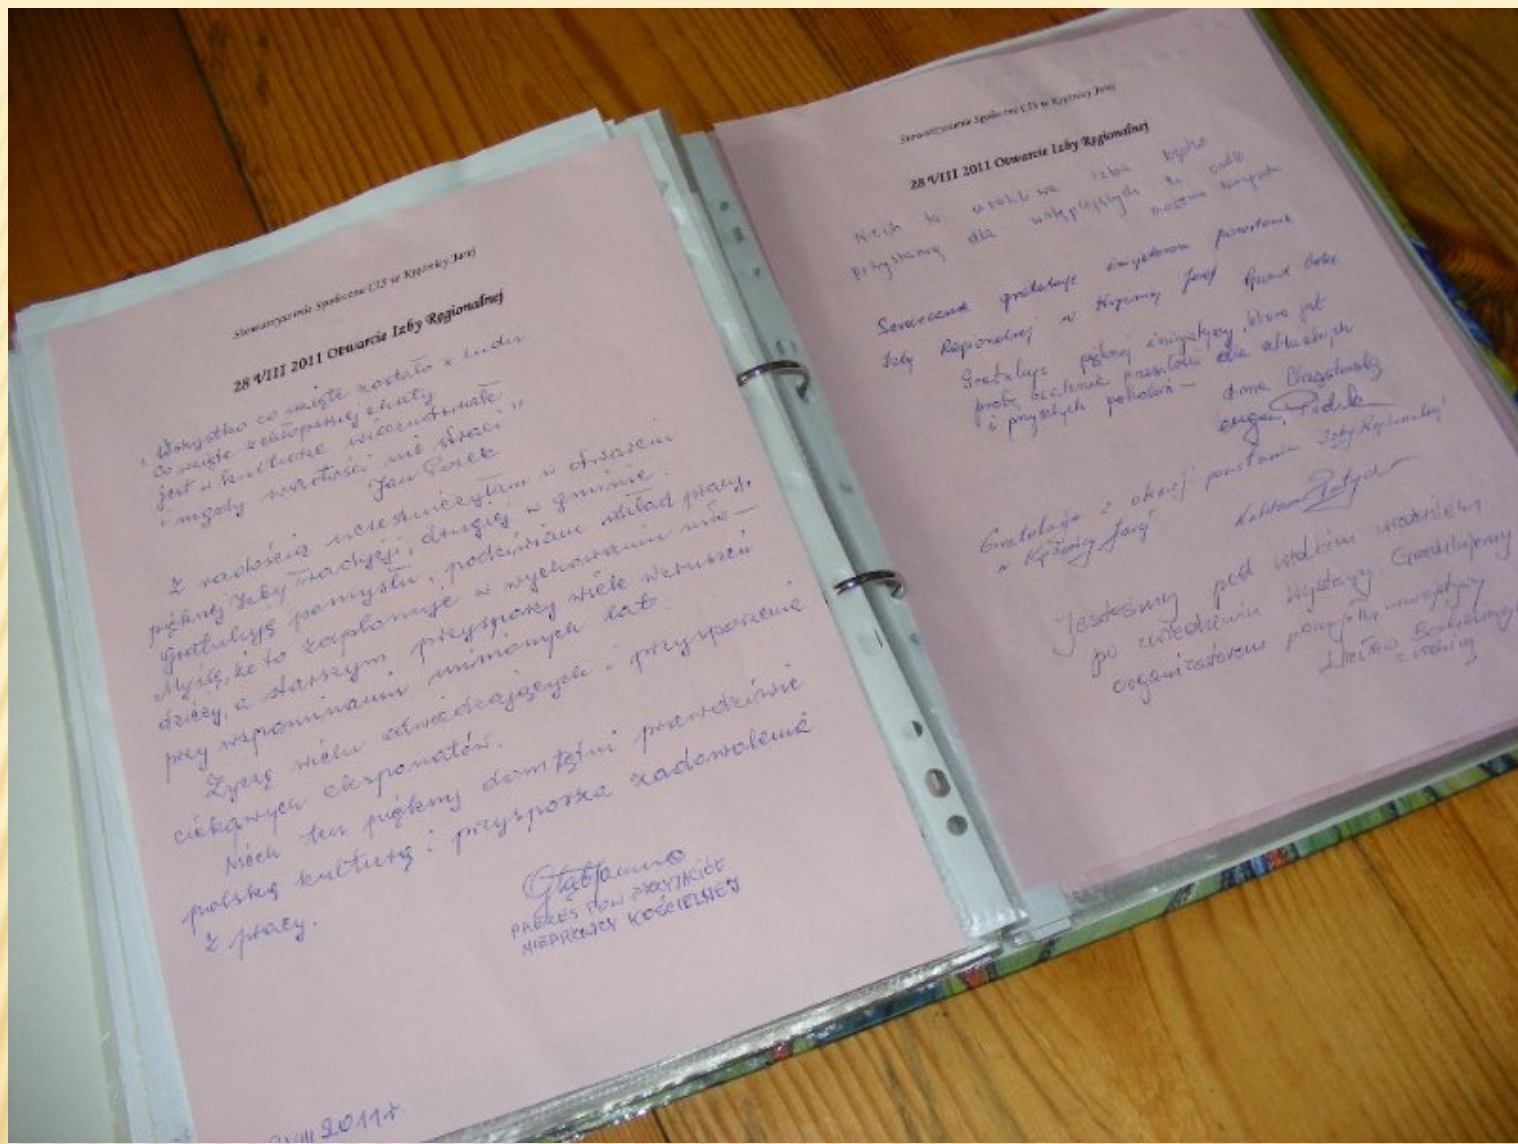 Stowarzyszenie Społeczne CIS w Krężnicy Jarej
28 VIII 2011 Otwarcie Izby Regionalnej
"Wszystko co wzięte zostało z ludu
co wzięte z chłopskiej chaty
jest w kulturze wieczno trwałe
i nigdy wartości nie straci"
Jan Pocek
Z radością uczestniczyłam w otwarciu
pięknej Izby Tradycji, drugiej w gminie.
Gratuluję pomysłu, podziwiam wkład pracy.
Myślę, że to zaplonuje w wychowaniu mło-
dzieży, a starszym przysporzy wiele wzruszeń
przy wspominaniu minionych lat.
Życzę wielu odwiedzających i przysporzenia
ciekawych eksponatów.
Niech ten piękny dom tętni prawdziwie
polską kulturą i przysparza zadowolenia
z pracy.
PREZES TOW PRZYJACIÓŁ
NIEDRZWICY KOŚCIELNEJ
VIII 2011 r.
Stowarzyszenie Społeczne CIS w Krężnicy Jarej
28 VIII 2011 Otwarcie Izby Regionalnej
Niech ta urokliwa izba będzie
przystanią dla wstępujących tu osób
Serdecznie gratuluję inicjatorom powstania
Izby Regionalnej w Krężnicy Jarej
Gratuluję pięknej inicjatywy, która jest
próbą ocalenia przeszłości dla aktualnych
i przyszłych pokoleń - Anna
Gratulacje z okazji powstania Izby Regionalnej
w Krężnicy Jarej
Jesteśmy pod wielkim wrażeniem
po zwiedzeniu wystawy. Gratulujemy
organizatorom pomysłu, inicjatywy
z rodziną